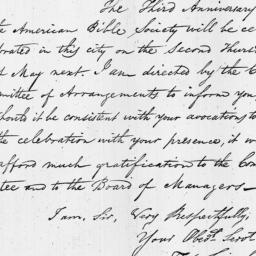 The Third Anniversary
American Bible Society will be ce
brated in this city on the Second Thurs
of May next. I am directed by the C
mittee of Arrangements to inform you
should it be consistent with your avocations to
the celebration with your presence, it w
afford much gratification to the Com
tee and to the Board of Managers—
I am, Sir, Very Respectfully,
Your Obdt. Servt